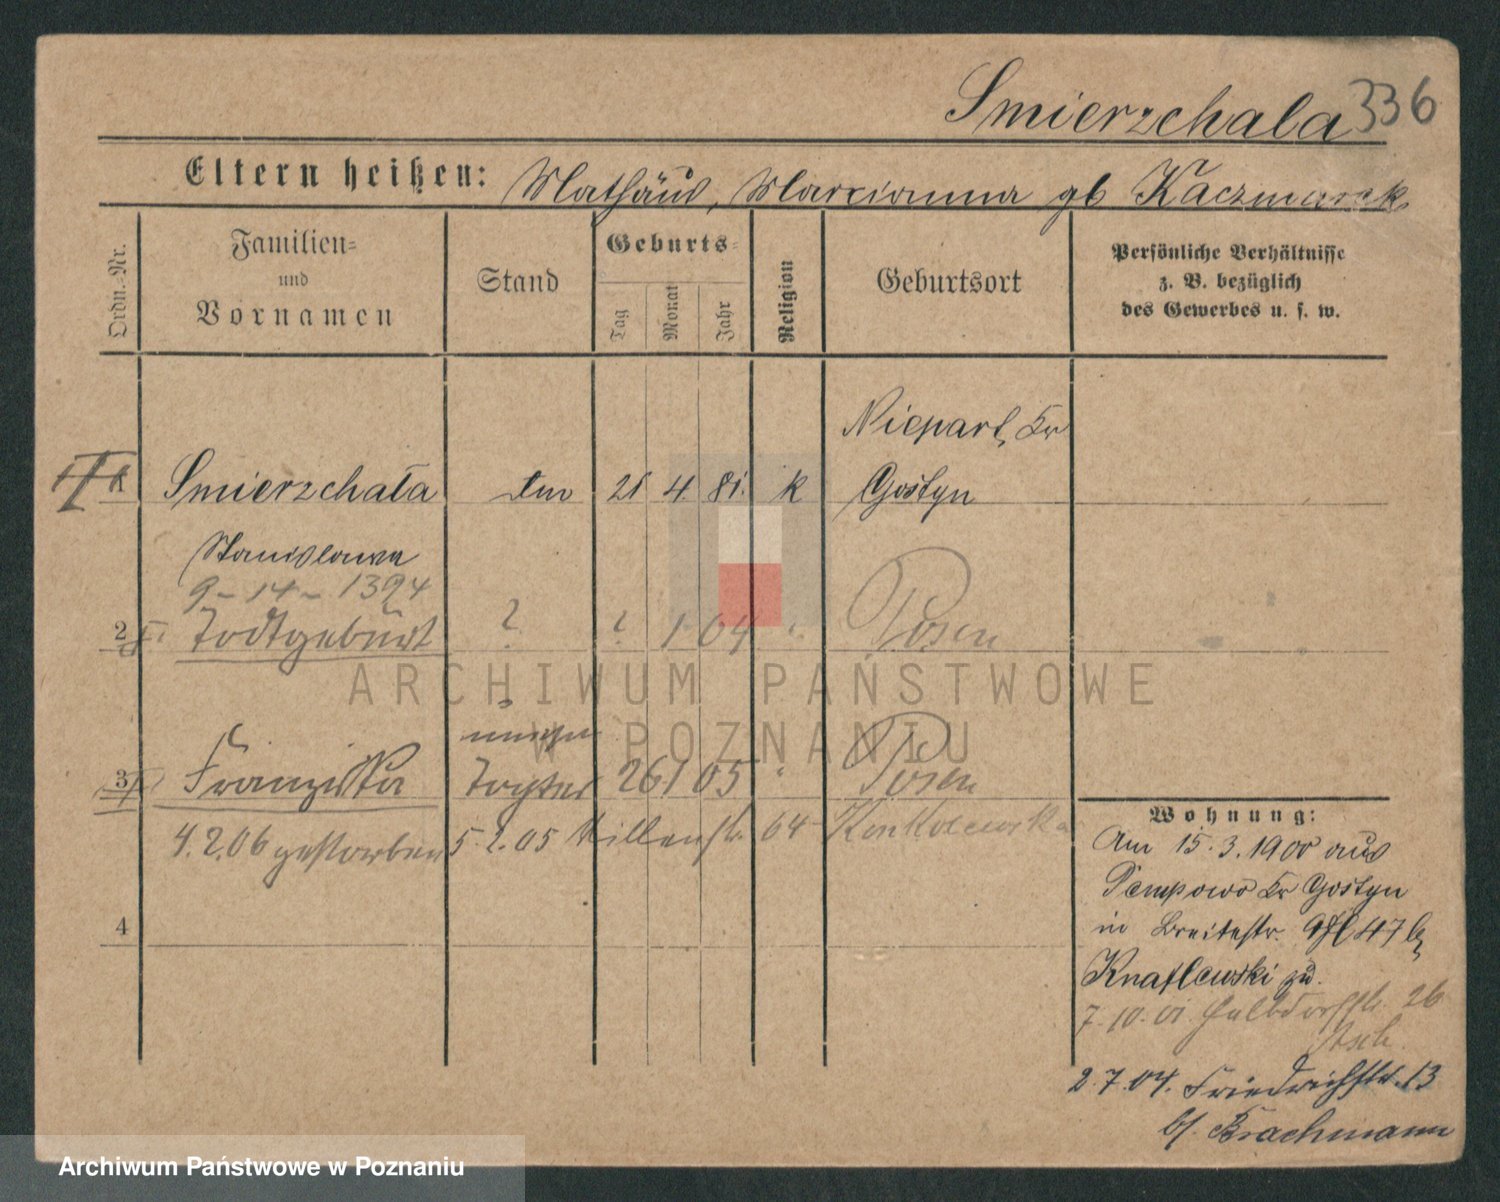 Smierzchala 336
Eltern heißen: Mathäus, Marcianna gb Kaczmarek
Ordn.-Nr.
Familien-
und
Vornamen
Stand
Geburts-
Tag
Monat
Jahr
Religion
Geburtsort
Persönliche Verhältnisse
z. B. bezüglich
des Gewerbes u. s. w.
Niepart, Kr
1 Smierzchała 21 4 81. k Gostyn
Stanislawa
9-14-1394
2 Todtgeburt ? ? 1 04 " Posen
ARCHIWUM PAŃSTWOWE
W POZNANIU
3 Franziska Tochter 26 1 05 " Posen
4.2.06 gestorben 5.2.05 64
4
Wohnung:
Am 15.3.1900 aus
Pempowo Kr Gostyn
in Breitestr. 47 b,
zu.
7.10.01 Halbdorfstr. 26
2.7.04. Friedrichstr. 13
bf. Brachmann
Archiwum Państwowe w Poznaniu